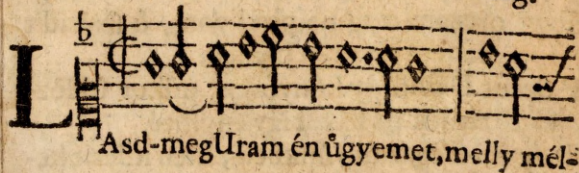 LAsd-meg Uram én ůgyemet, melly mél-